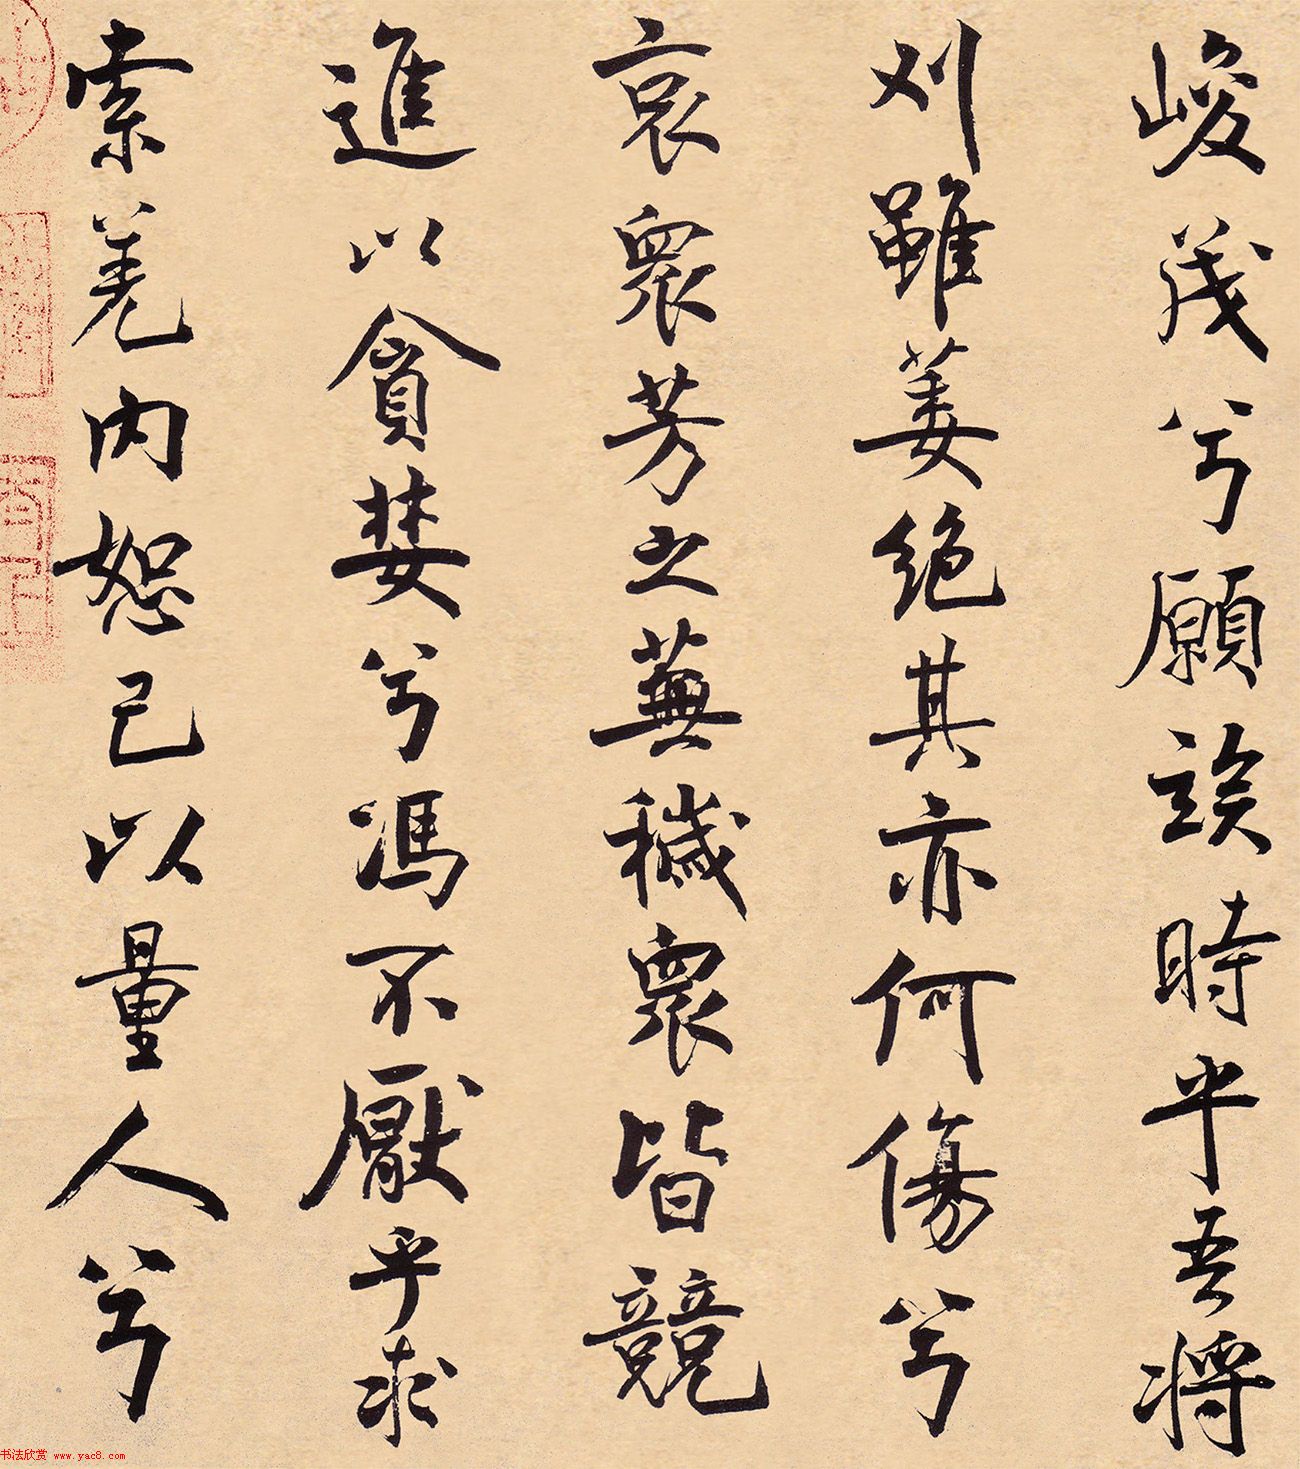 峻茂兮願竢時乎吾將
刈雖萎絶其亦何傷兮
哀衆芳之蕪穢衆皆競
進以貪婪兮馮不厭乎求
索羌内恕己以量人兮
书法欣赏 www.yac8.com